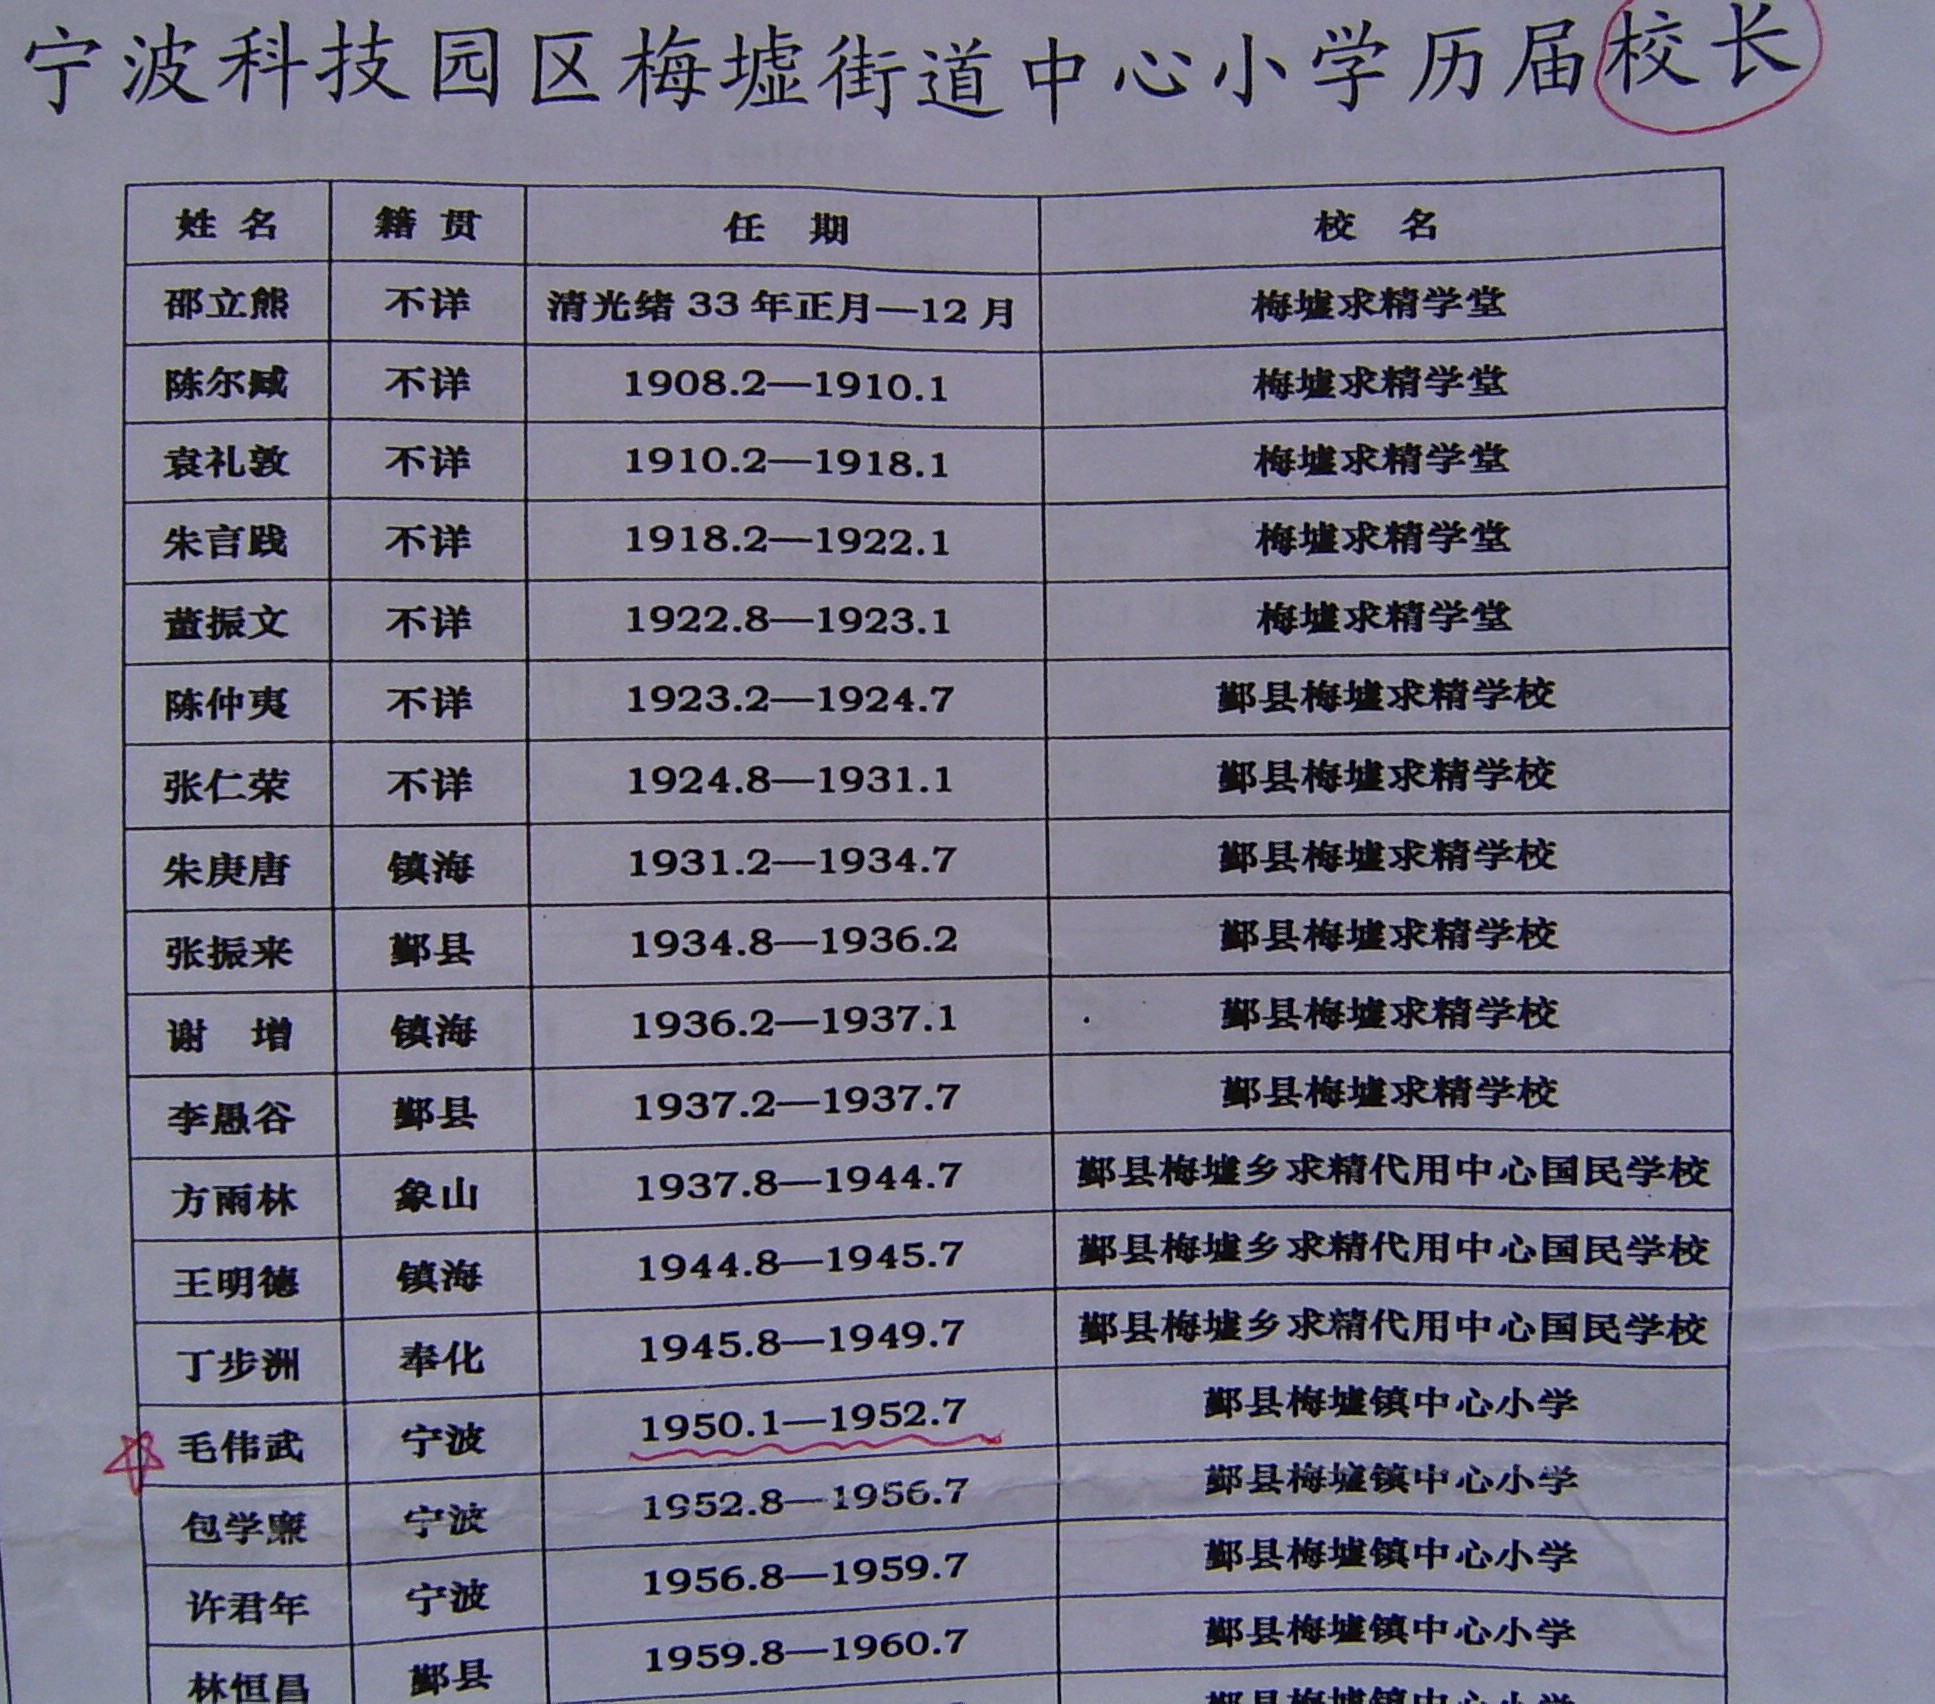 宁波科技园区梅墟街道中心小学历届校长
姓名 籍贯 任期 校名
邵立熊 不详 清光绪33年正月—12月 梅墟求精学堂
陈尔臧 不详 1908.2—1910.1 梅墟求精学堂
袁礼敦 不详 1910.2—1918.1 梅墟求精学堂
朱言践 不详 1918.2—1922.1 梅墟求精学堂
董振文 不详 1922.8—1923.1 梅墟求精学堂
陈仲夷 不详 1923.2—1924.7 鄞县梅墟求精学校
张仁荣 不详 1924.8—1931.1 鄞县梅墟求精学校
朱庚唐 镇海 1931.2—1934.7 鄞县梅墟求精学校
张振来 鄞县 1934.8—1936.2 鄞县梅墟求精学校
谢增 镇海 1936.2—1937.1 鄞县梅墟求精学校
李愚谷 鄞县 1937.2—1937.7 鄞县梅墟求精学校
方雨林 象山 1937.8—1944.7 鄞县梅墟乡求精代用中心国民学校
王明德 镇海 1944.8—1945.7 鄞县梅墟乡求精代用中心国民学校
丁步洲 奉化 1945.8—1949.7 鄞县梅墟乡求精代用中心国民学校
毛伟武 宁波 1950.1—1952.7 鄞县梅墟镇中心小学
包学廉 宁波 1952.8—1956.7 鄞县梅墟镇中心小学
许君年 宁波 1956.8—1959.7 鄞县梅墟镇中心小学
林恒昌 鄞县 1959.8—1960.7 鄞县梅墟镇中心小学
鄞县梅墟镇中心小学